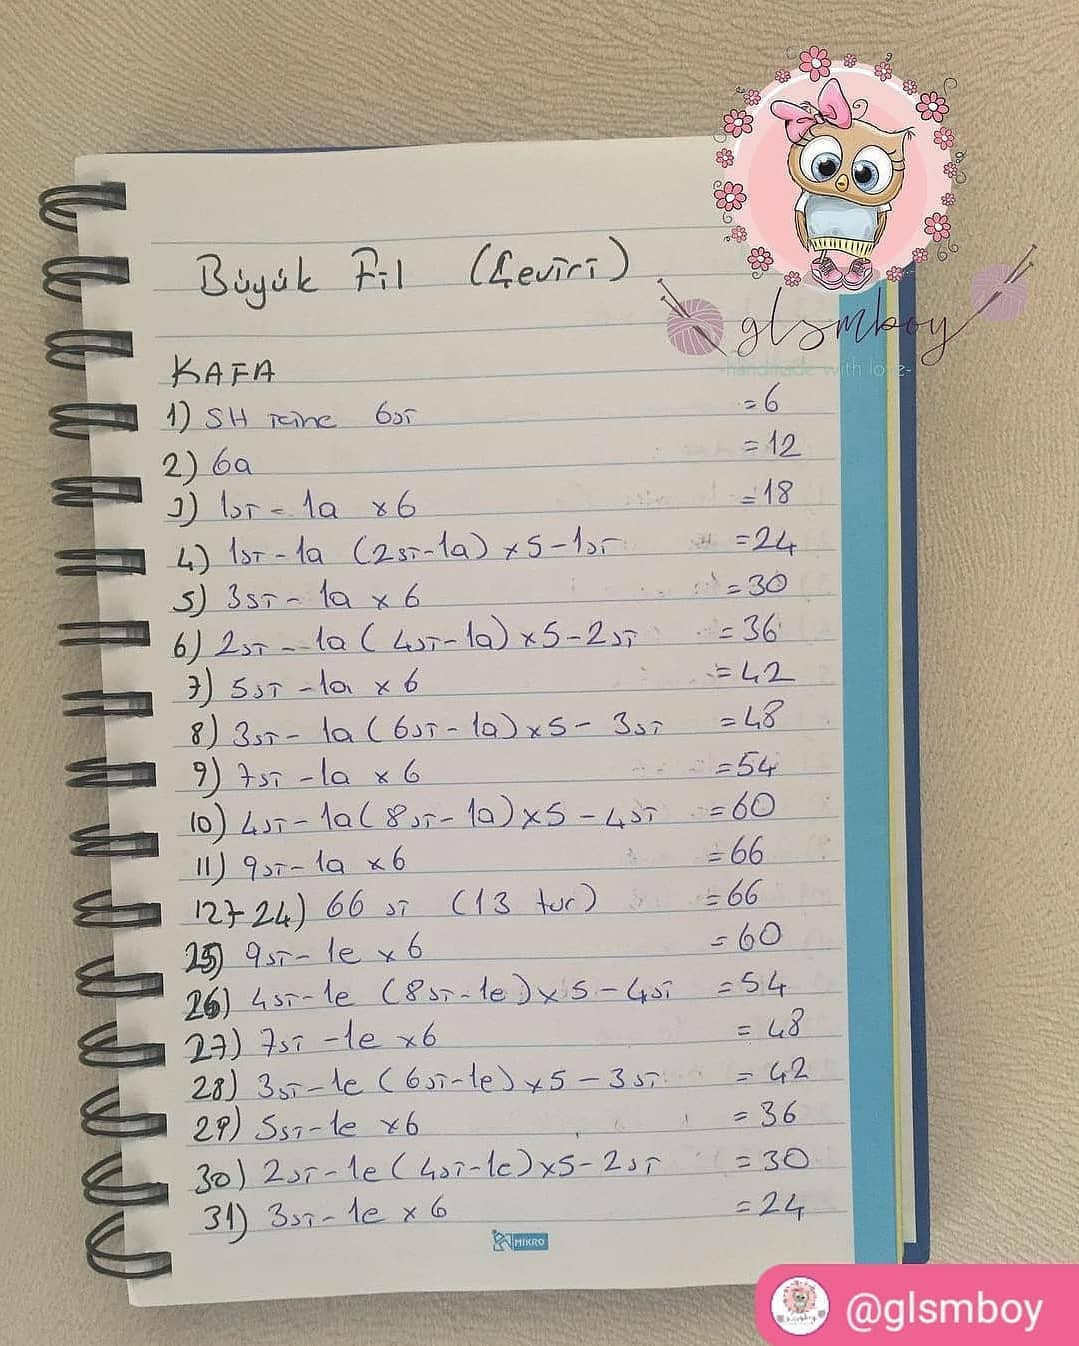 Büyük Fil (Çeviri)
glsmboy
-handmade with love-
KAFA
1) SH içine 6sı =6
2) 6a =12
3) 1sı - 1a x6 =18
4) 1sı - 1a (2sı-1a) x5-1sı =24
5) 3sı - 1a x 6 =30
6) 2sı - 1a (4sı-1a) x5-2sı =36
7) 5sı - 1a x 6 =42
8) 3sı - 1a (6sı-1a) x5- 3sı =48
9) 7sı - 1a x 6 =54
10) 4sı - 1a (8sı-1a) x5 - 4sı =60
11) 9sı-1a x6 =66
12-24) 66 sı (13 tur) =66
25) 9sı-1e x6 =60
26) 4sı-1e (8sı-1e) x5-4sı =54
27) 7sı -1e x6 =48
28) 3sı-1e (6sı-1e) x5-3sı =42
29) 5sı-1e x6 =36
30) 2sı-1e (4sı-1e) x5-2sı =30
31) 3sı-1e x 6 =24
MIKRO
@glsmboy